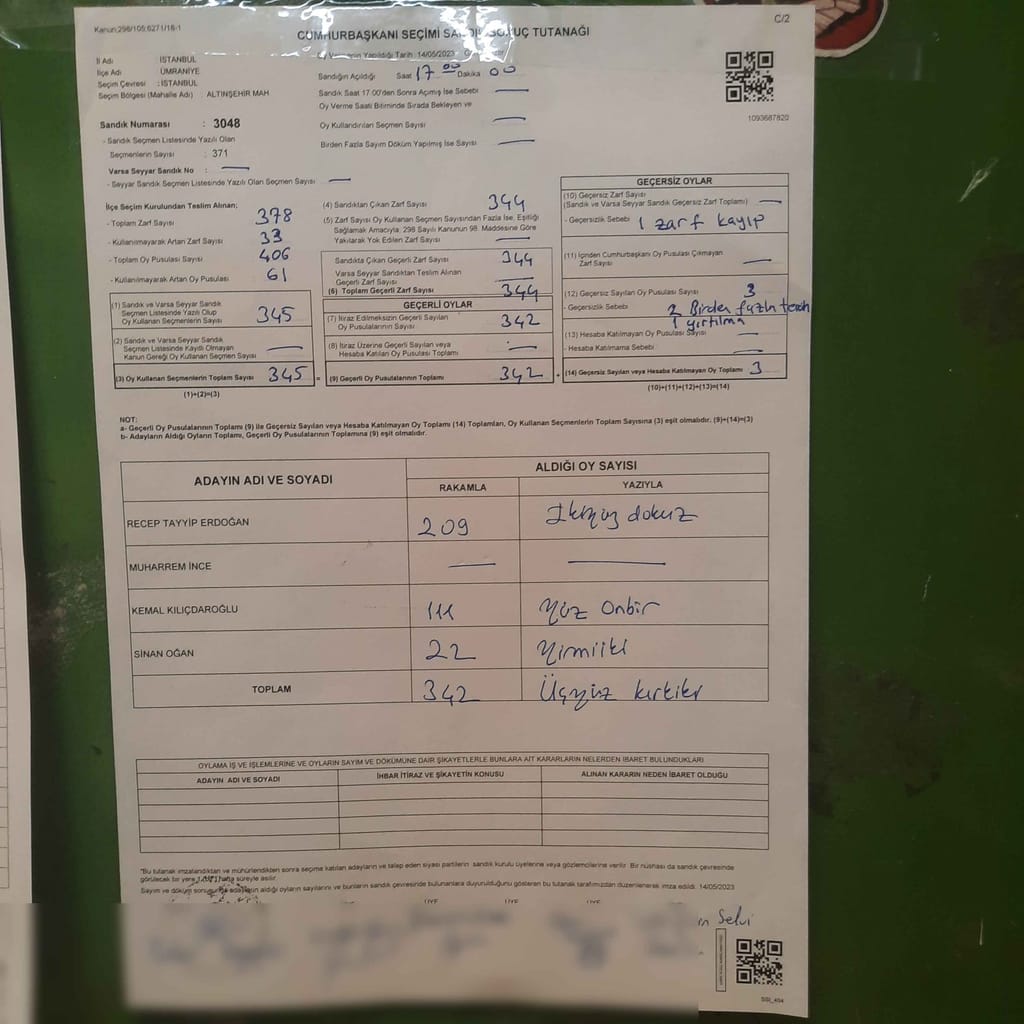 Kanun:298/105;6271/16-1
C/2
CUMHURBAŞKANI SEÇİMİ SANDIK SONUÇ TUTANAĞI
Tarih : 14/05/2023
İl Adı : İSTANBUL
İlçe Adı : ÜMRANİYE
Seçim Çevresi : İSTANBUL
Seçim Bölgesi (Mahalle Adı) : ALTINŞEHİR MAH
Sandık Numarası : 3048
- Sandık Seçmen Listesinde Yazılı Olan
Seçmenlerin Sayısı : 371
Varsa Seyyar Sandık No : —
- Seyyar Sandık Seçmen Listesinde Yazılı Olan Seçmen Sayısı —
Sandığın Açıldığı Saat 17 00 Dakika 00
Sandık Saat 17.00'den Sonra Açımış İse Sebebi —
Oy Verme Saati Bitiminde Sırada Bekleyen ve
Oy Kullandırılan Seçmen Sayısı —
Birden Fazla Sayım Döküm Yapılmış İse Sayısı —
1093687820
İlçe Seçim Kurulundan Teslim Alınan;
- Toplam Zarf Sayısı 378
- Kullanılmayarak Artan Zarf Sayısı 33
- Toplam Oy Pusulası Sayısı 406
- Kullanılmayarak Artan Oy Pusulası 61
(1) Sandık ve Varsa Seyyar Sandık
Seçmen Listesinde Yazılı Olup
Oy Kullanan Seçmenlerin Sayısı 345
(2) Sandık ve Varsa Seyyar Sandık
Seçmen Listesinde Kaydı Olmayan
Kanun Gereği Oy Kullanan Seçmen Sayısı —
(3) Oy Kullanan Seçmenlerin Toplam Sayısı 345 =
(1)+(2)=(3)
(4) Sandıktan Çıkan Zarf Sayısı 344
(5) Zarf Sayısı Oy Kullanan Seçmen Sayısından Fazla İse, Eşitliği
Sağlamak Amacıyla, 298 Sayılı Kanunun 98. Maddesine Göre
Yakılarak Yok Edilen Zarf Sayısı —
Sandıkta Çıkan Geçerli Zarf Sayısı 344
Varsa Seyyar Sandıktan Teslim Alınan
Geçerli Zarf Sayısı —
(6) Toplam Geçerli Zarf Sayısı 344
GEÇERLİ OYLAR
(7) İtiraz Edilmeksizin Geçerli Sayılan
Oy Pusulalarının Sayısı 342
(8) İtiraz Üzerine Geçerli Sayılan veya
Hesaba Katılan Oy Pusulası Toplamı —
(9) Geçerli Oy Pusulalarının Toplamı 342 +
GEÇERSİZ OYLAR
(10) Geçersiz Zarf Sayısı
(Sandık ve Varsa Seyyar Sandık Geçersiz Zarf Toplamı) —
- Geçersizlik Sebebi 1 zarf kayıp
(11) İçinden Cumhurbaşkanı Oy Pusulası Çıkmayan
Zarf Sayısı —
(12) Geçersiz Sayılan Oy Pusulası Sayısı 3
- Geçersizlik Sebebi 2 Birden fazla tercih
1 yırtılma
(13) Hesaba Katılmayan Oy Pusulası Sayısı —
- Hesaba Katılmama Sebebi —
(14) Geçersiz Sayılan veya Hesaba Katılmayan Oy Toplamı 3
(10)+(11)+(12)+(13)=(14)
NOT:
a- Geçerli Oy Pusulalarının Toplamı (9) ile Geçersiz Sayılan veya Hesaba Katılmayan Oy Toplamı (14) Toplamları, Oy Kullanan Seçmenlerin Toplam Sayısına (3) eşit olmalıdır. (9)+(14)=(3)
b- Adayların Aldığı Oyların Toplamı, Geçerli Oy Pusulalarının Toplamına (9) eşit olmalıdır.
ADAYIN ADI VE SOYADI
ALDIĞI OY SAYISI
RAKAMLA YAZIYLA
RECEP TAYYİP ERDOĞAN 209 İkiyüz dokuz
MUHARREM İNCE — —
KEMAL KILIÇDAROĞLU 111 Yüz Onbir
SİNAN OĞAN 22 Yirmiiki
TOPLAM 342 Üçyüz kırkiki
OYLAMA İŞ VE İŞLEMLERİNE VE OYLARIN SAYIM VE DÖKÜMÜNE DAİR ŞİKAYETLERLE BUNLARA AİT KARARLARIN NELERDEN İBARET BULUNDUKLARI
ADAYIN ADI VE SOYADI İHBAR İTİRAZ VE ŞİKAYETİN KONUSU ALINAN KARARIN NEDEN İBARET OLDUĞU
"Bu tutanak imzalandıktan ve mühürlendikten sonra seçime katılan adayların ve talep eden siyasi partilerin sandık kurulu üyelerine veya gözlemcilerine verilir. Bir nüshası da sandık çevresinde
görülecek bir yere hafta süreyle asılır.
Sayım ve döküm sonucunda adayların aldığı oyların sayılarını ve bunların sandık çevresinde bulunanlara duyurulduğunu gösteren bu tutanak tarafımızdan düzenlenerek imza edildi. 14/05/2023
ÜYE ÜYE ÜYE
Selvi